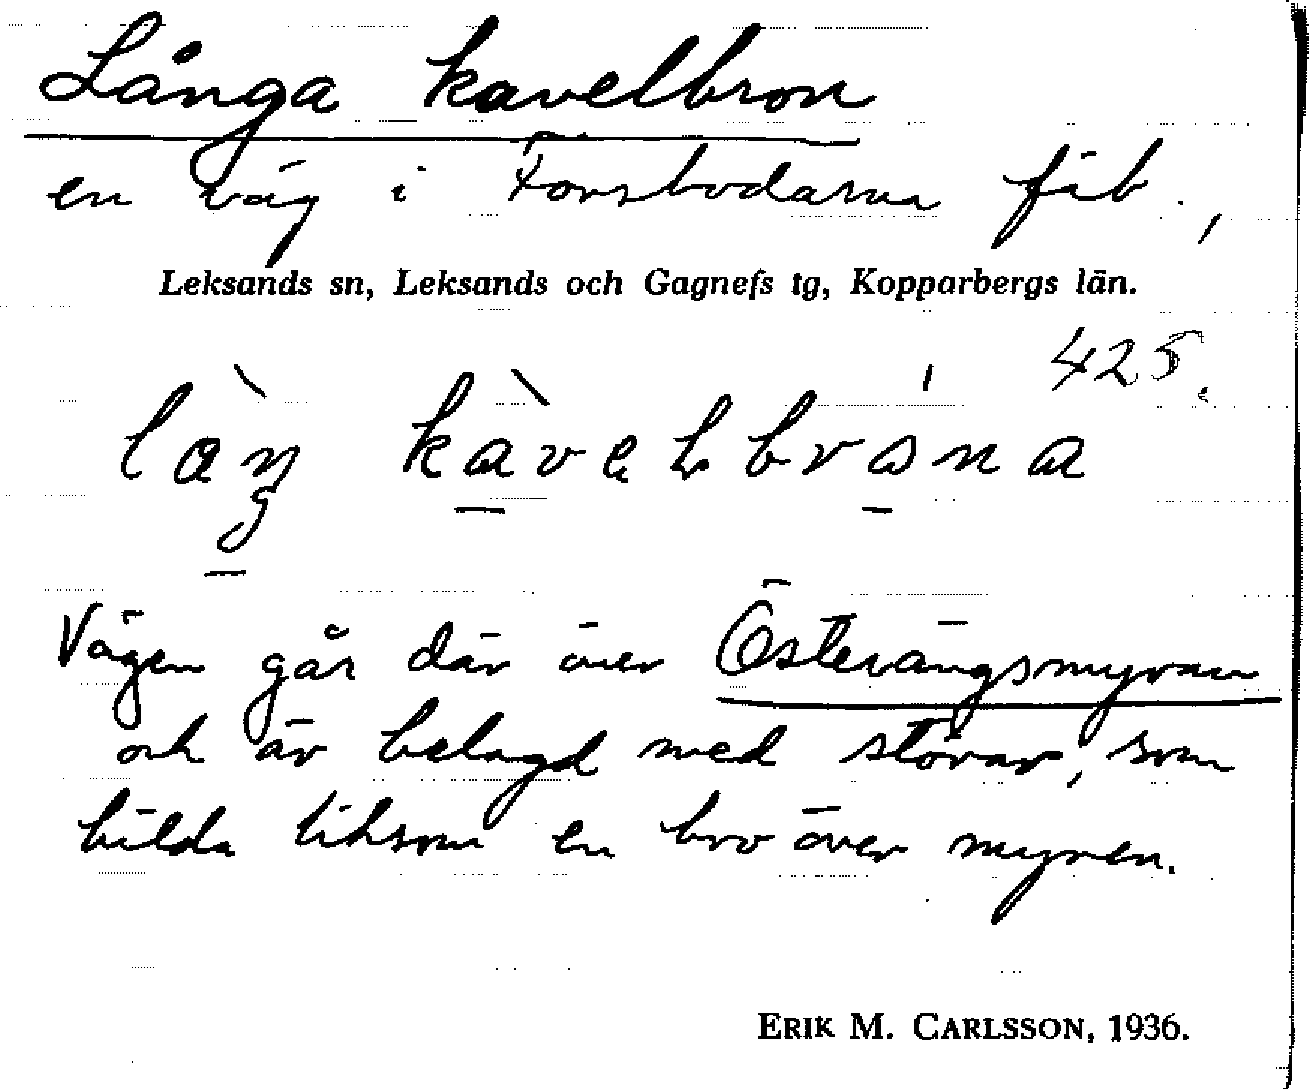 Långa kavelbron
en väg i Forsbodarna fäb.,
Leksands sn, Leksands och Gagnefs tg, Kopparbergs län.
425.
Vägen går där över Österängsmyran
och är belagd med störar, som
bilda liksom en bro över myren.
ERIK M. CARLSSON, 1936.